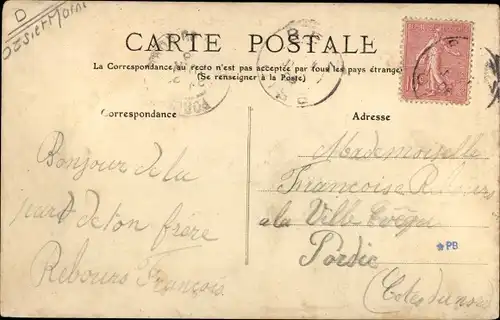 D
CARTE POSTALE
La Correspondance au recto n'est pas acceptée par tous les pays étrangers
(Se renseigner à la Poste)
Correspondance
Adresse
Bonjour de la
part de ton frère
Rebours François
Mademoiselle
Françoise Rebours
a la Ville
Pordic
(Cotes du nord)
PB